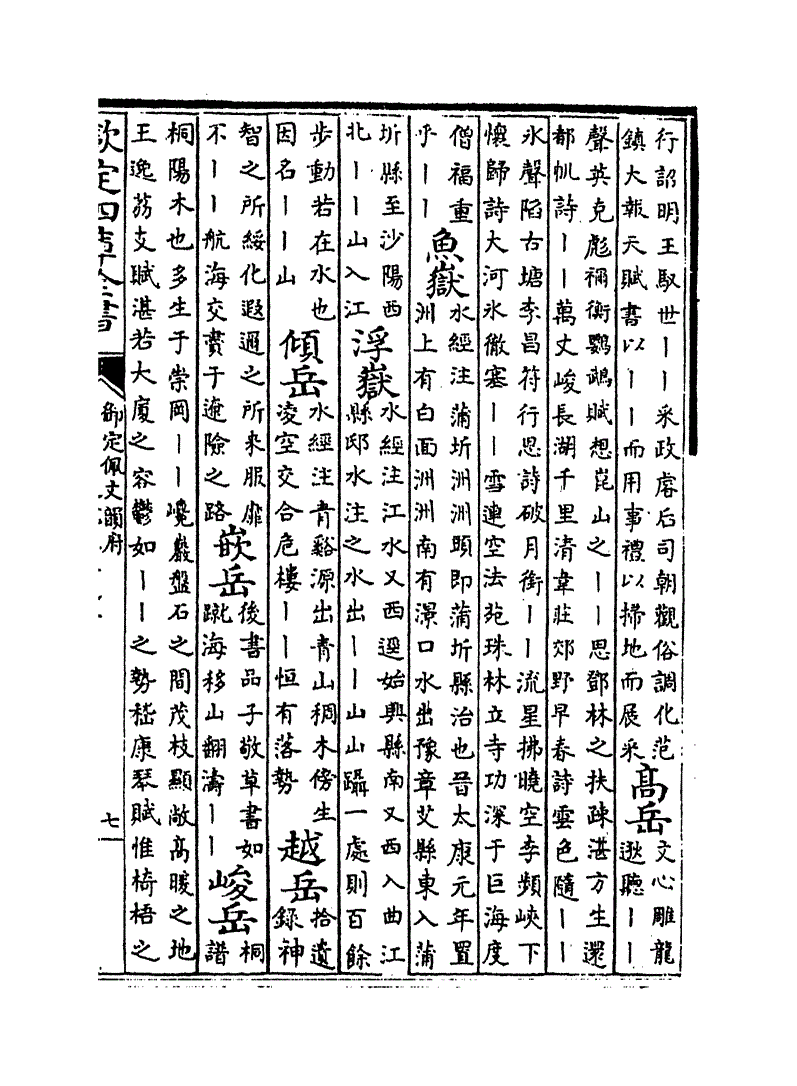 行詔明王馭世丨丨采政虛后司朝觀俗調化范
鎮大報天賦書以丨丨而用事禮以掃地而展采
高岳
文心雕龍
逖聽丨丨
聲英克彪禰衡鸚鵡賦想崑山之丨丨思鄧林之扶疎湛方生還
都帆詩丨丨萬丈峻長湖千里清韋莊郊野早春詩雲色隨丨丨
氷聲陷古塘李昌符行思詩破月銜丨丨流星拂曉空李頻峽下
懷歸詩大河氷徹塞丨丨雪連空法苑珠林立寺功深于巨海度
僧福重
乎丨丨
魚嶽
水經注蒲圻洲洲頭即蒲圻縣治也晉太康元年置
洲上有白面洲洲南有澋口水出豫章艾縣東入蒲
圻縣至沙陽西
北丨丨山入江
浮嶽
水經注江水又西逕始興縣南又西入曲江
縣邸水注之水出丨丨山山躡一處則百餘
步動若在水也
因名丨丨山
傾岳
水經注青谿源出青山稠木傍生
淩空交合危樓丨丨恒有落勢
越岳
拾遺
錄神
智之所綏化遐邇之所來服靡
不丨丨航海交賮于遼險之路
嵌岳
後書品子敬草書如
蹴海移山翻濤丨丨
峻岳
桐
譜
桐陽木也多生于崇岡丨丨巉巖盤石之間茂枝顯敞高暖之地
王逸荔支賦湛若大廈之容鬱如丨丨之勢嵇康琴賦惟椅梧之
欽定四庫全書
御定佩文韻府
七